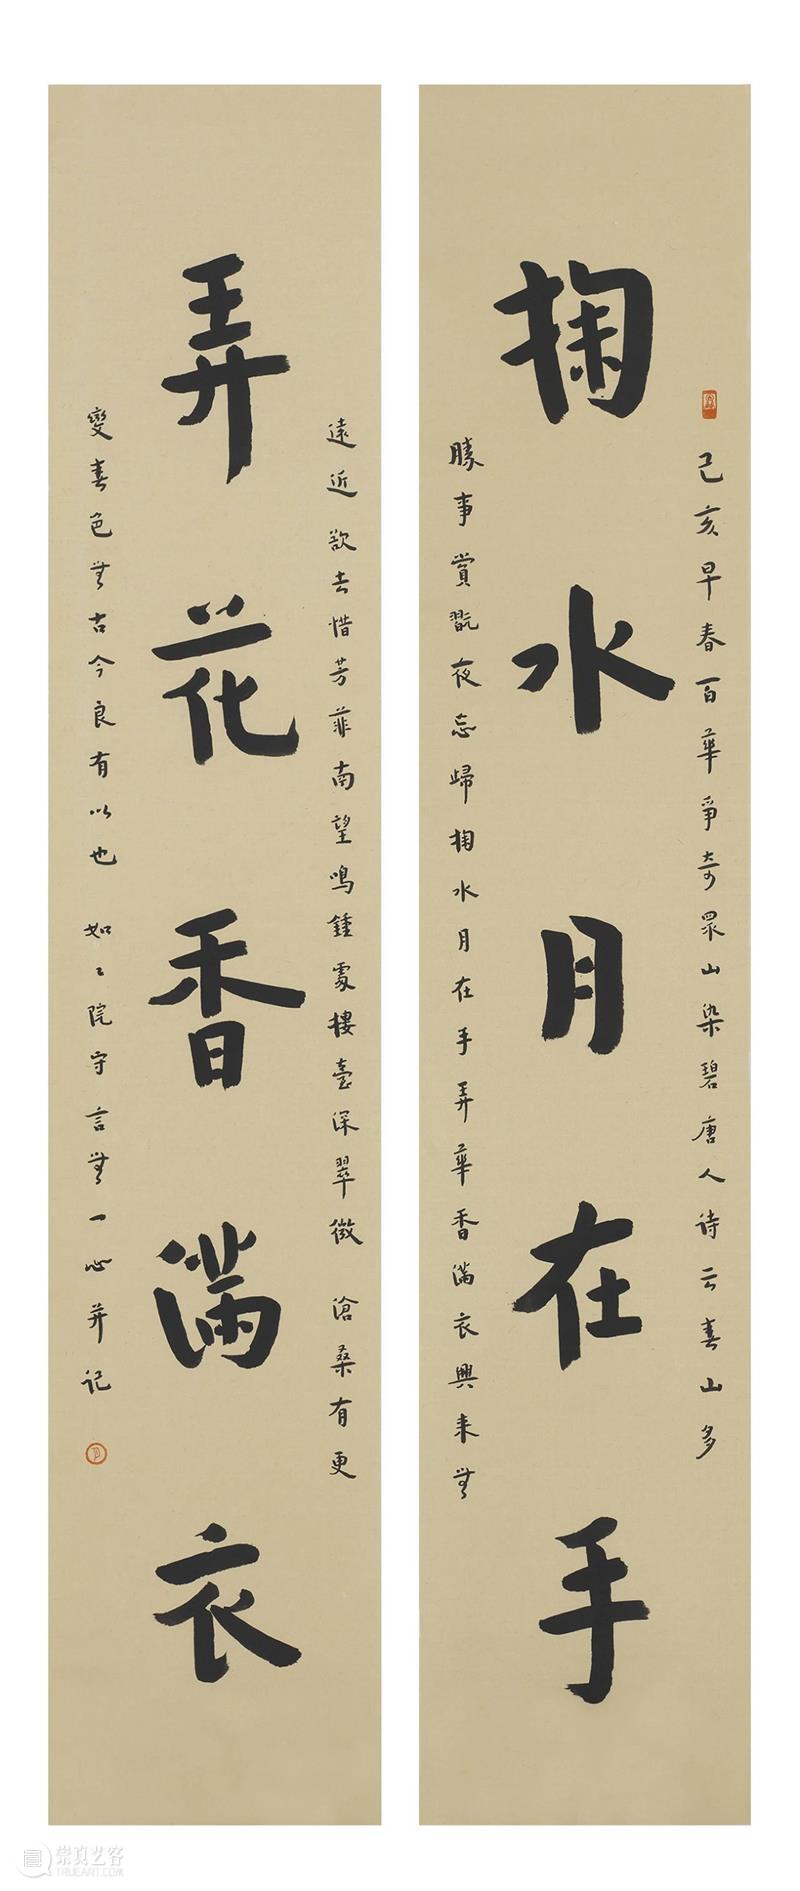 掬水月在手
弄花香满衣
己亥早春百華爭奇眾山染碧唐人诗云春山多
勝事賞翫夜忘歸掬水月在手弄華香满衣興来無
遠近欲去惜芳菲南望鳴鍾處樓臺深翠微 滄桑有更
變春色無古今良有以也 如々院守言無一心并记
崇真艺客
TRUEART.COM